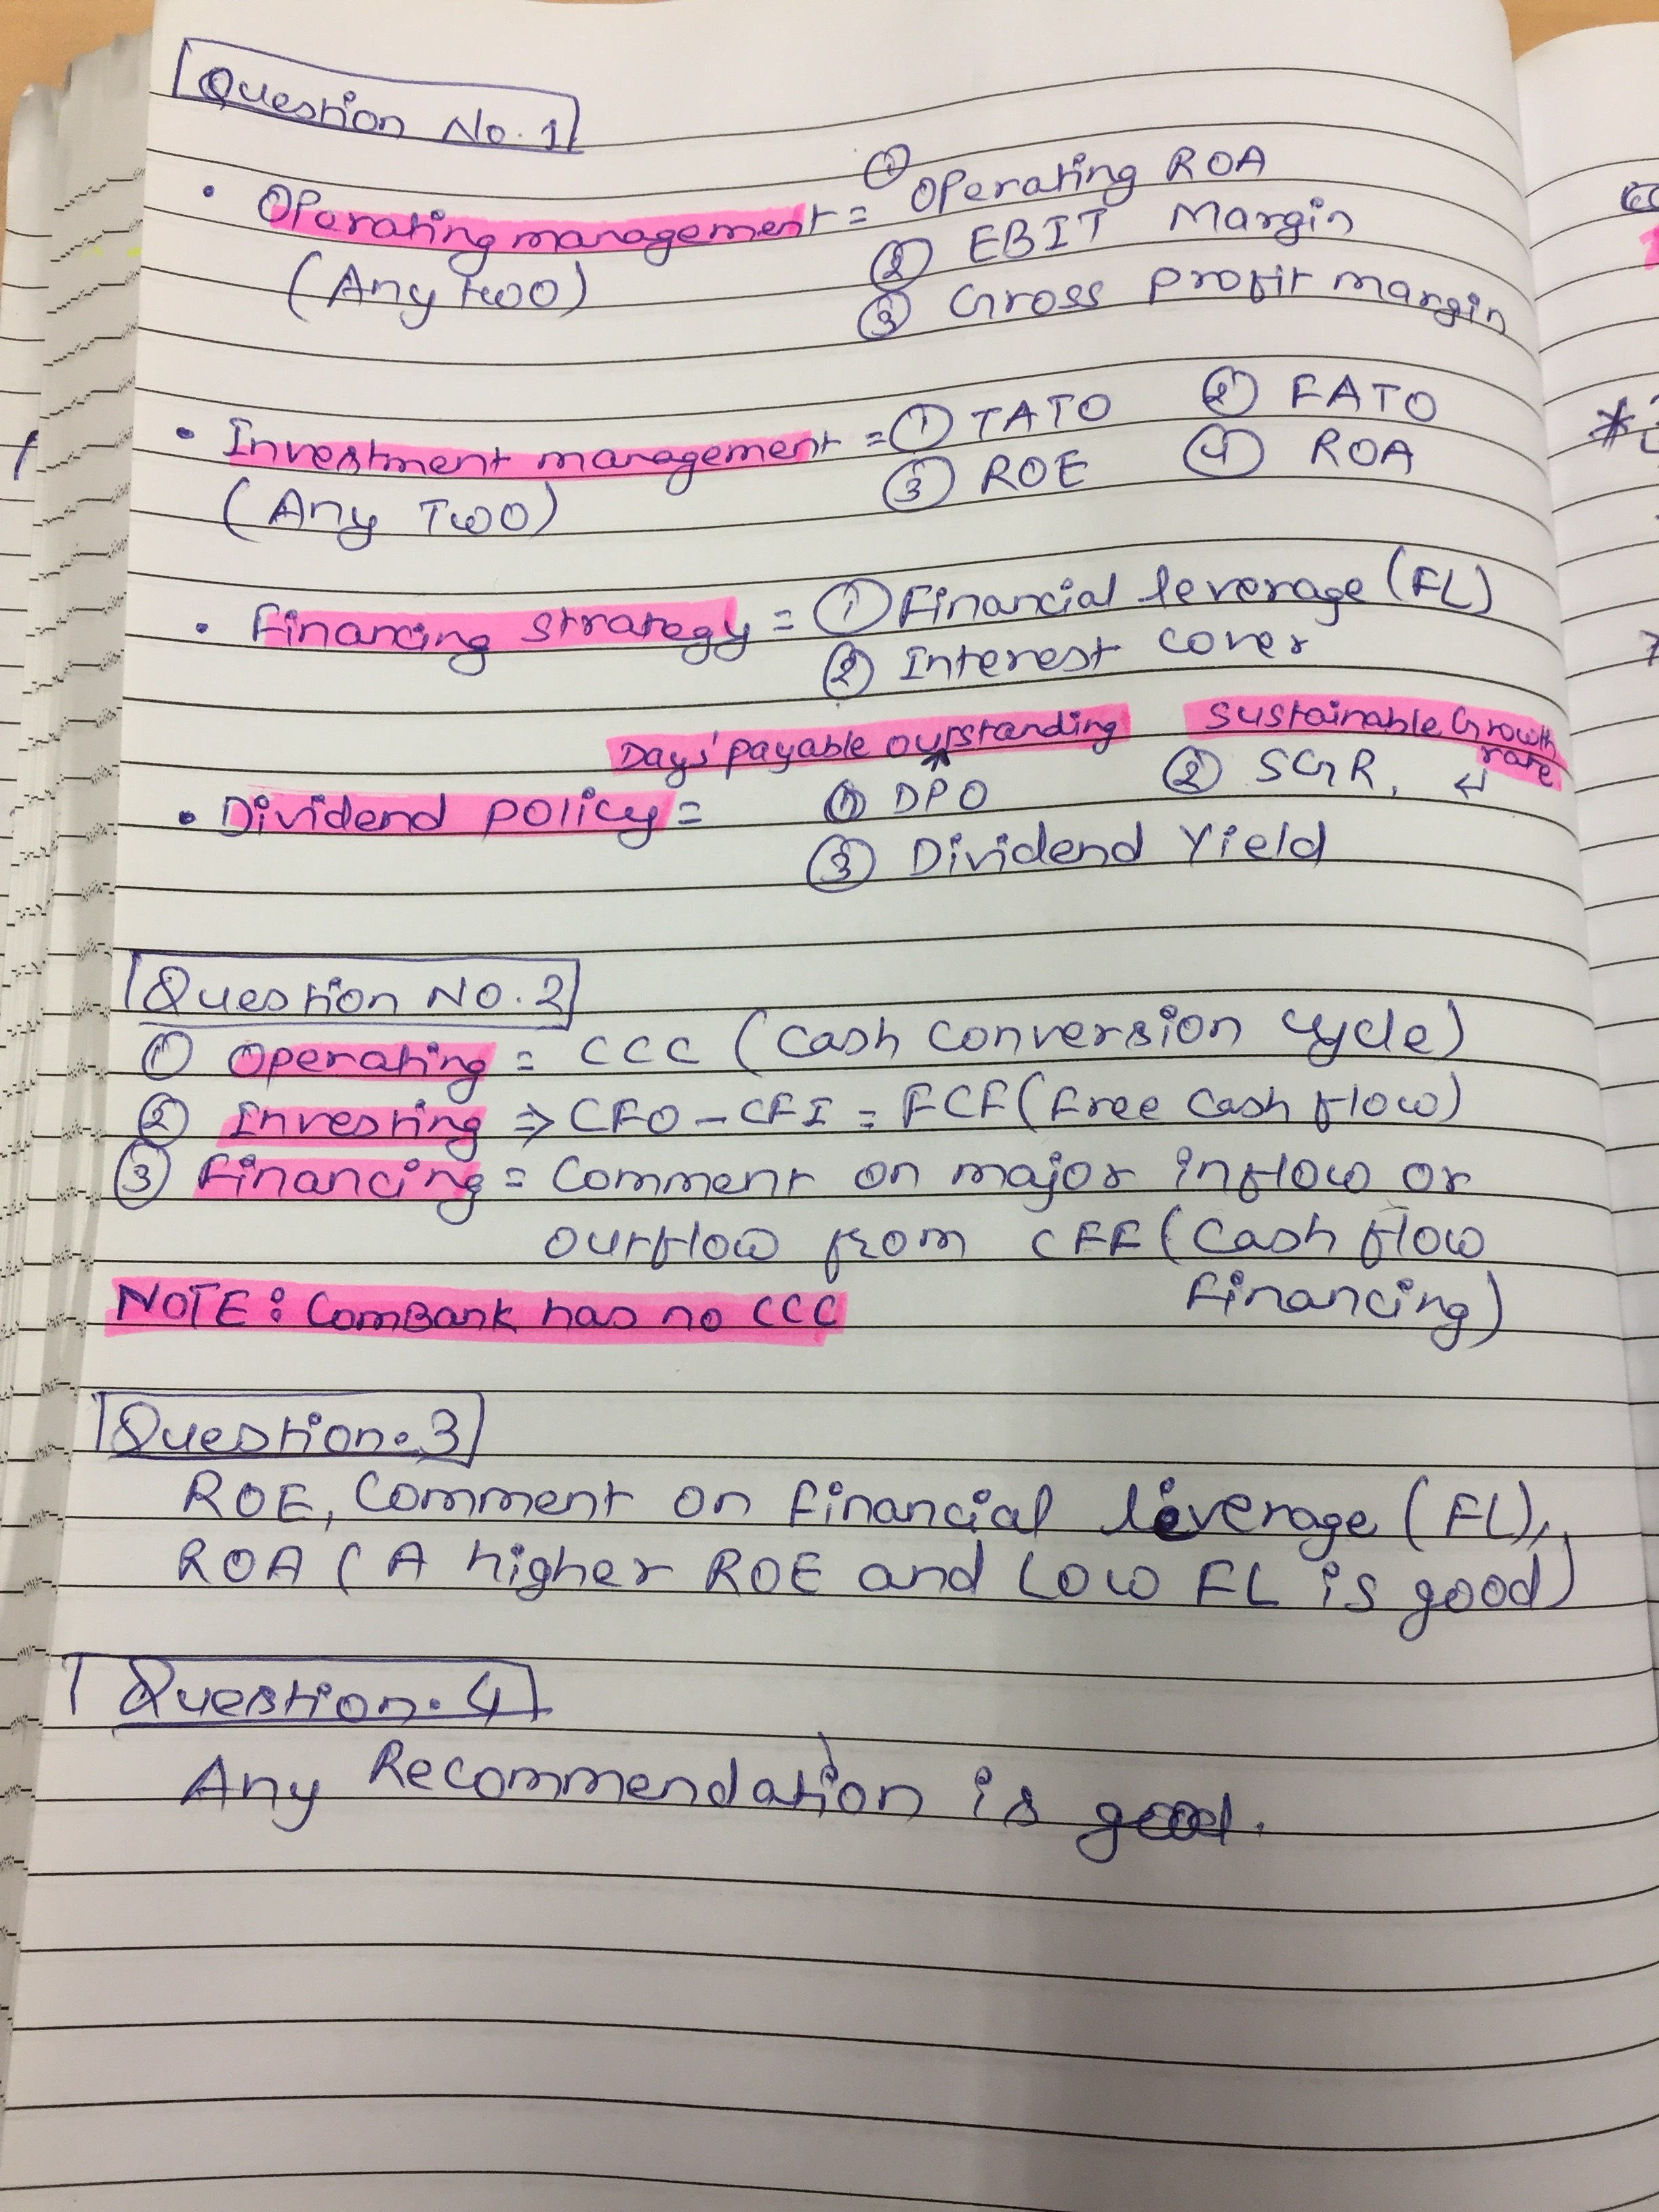 Question No. 1
• Operating management = ① Operating ROA
(Any two) ② EBIT Margin
③ Gross profit margin
• Investment management = ① TATO ② FATO
(Any Two) ③ ROE ④ ROA
• Financing strategy = ① Financial leverage (FL)
② Interest cover
Days' payable outstanding Sustainable Growth rate
• Dividend policy = ① DPO ② SGR.
③ Dividend Yield
Question No. 2
① Operating = CCC (Cash conversion cycle)
② Investing ⇒ CFO - CFI = FCF (Free Cash flow)
③ Financing = Comment on major inflow or
outflow from CFF (Cash flow
Financing)
NOTE: ComBank has no CCC
Question. 3
ROE, Comment on financial leverage (FL),
ROA ( A higher ROE and Low FL is good)
Question. 4
Any Recommendation is good.